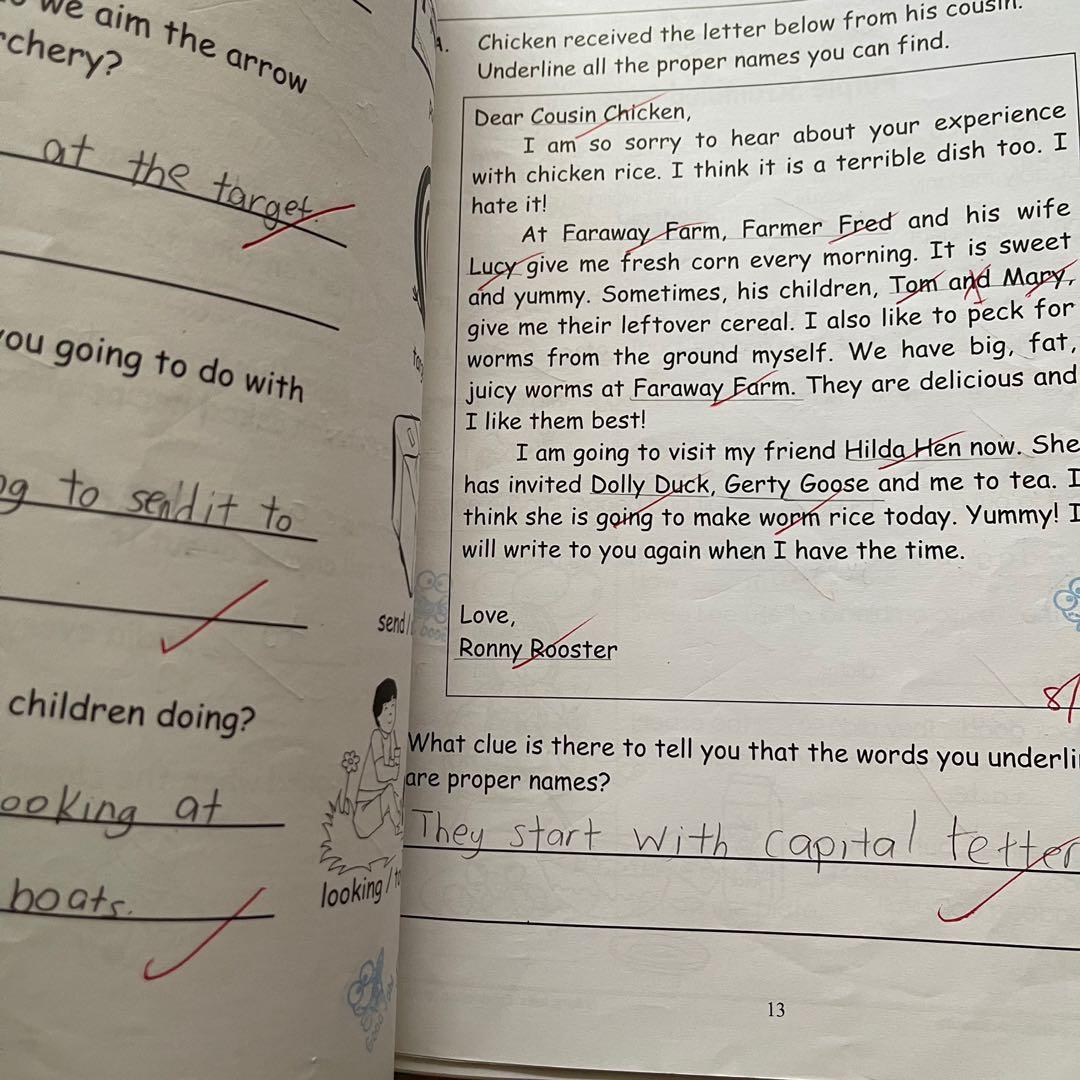 we aim the arrow
chery?
at the target.
you going to do with
to send it to
children doing?
looking at
boats.
send/
looking/
Chicken received the letter below from his cousin.
Underline all the proper names you can find.
Dear Cousin Chicken,
I am so sorry to hear about your experience
with chicken rice. I think it is a terrible dish too. I
hate it!
At Faraway Farm, Farmer Fred and his wife
Lucy give me fresh corn every morning. It is sweet
and yummy. Sometimes, his children, Tom and Mary,
give me their leftover cereal. I also like to peck for
worms from the ground myself. We have big, fat,
juicy worms at Faraway Farm. They are delicious and
I like them best!
I am going to visit my friend Hilda Hen now. She
has invited Dolly Duck, Gerty Goose and me to tea. I
think she is going to make worm rice today. Yummy! I
will write to you again when I have the time.
Love,
Ronny Rooster
8/
What clue is there to tell you that the words you underli
are proper names?
They start with capital tetter
13